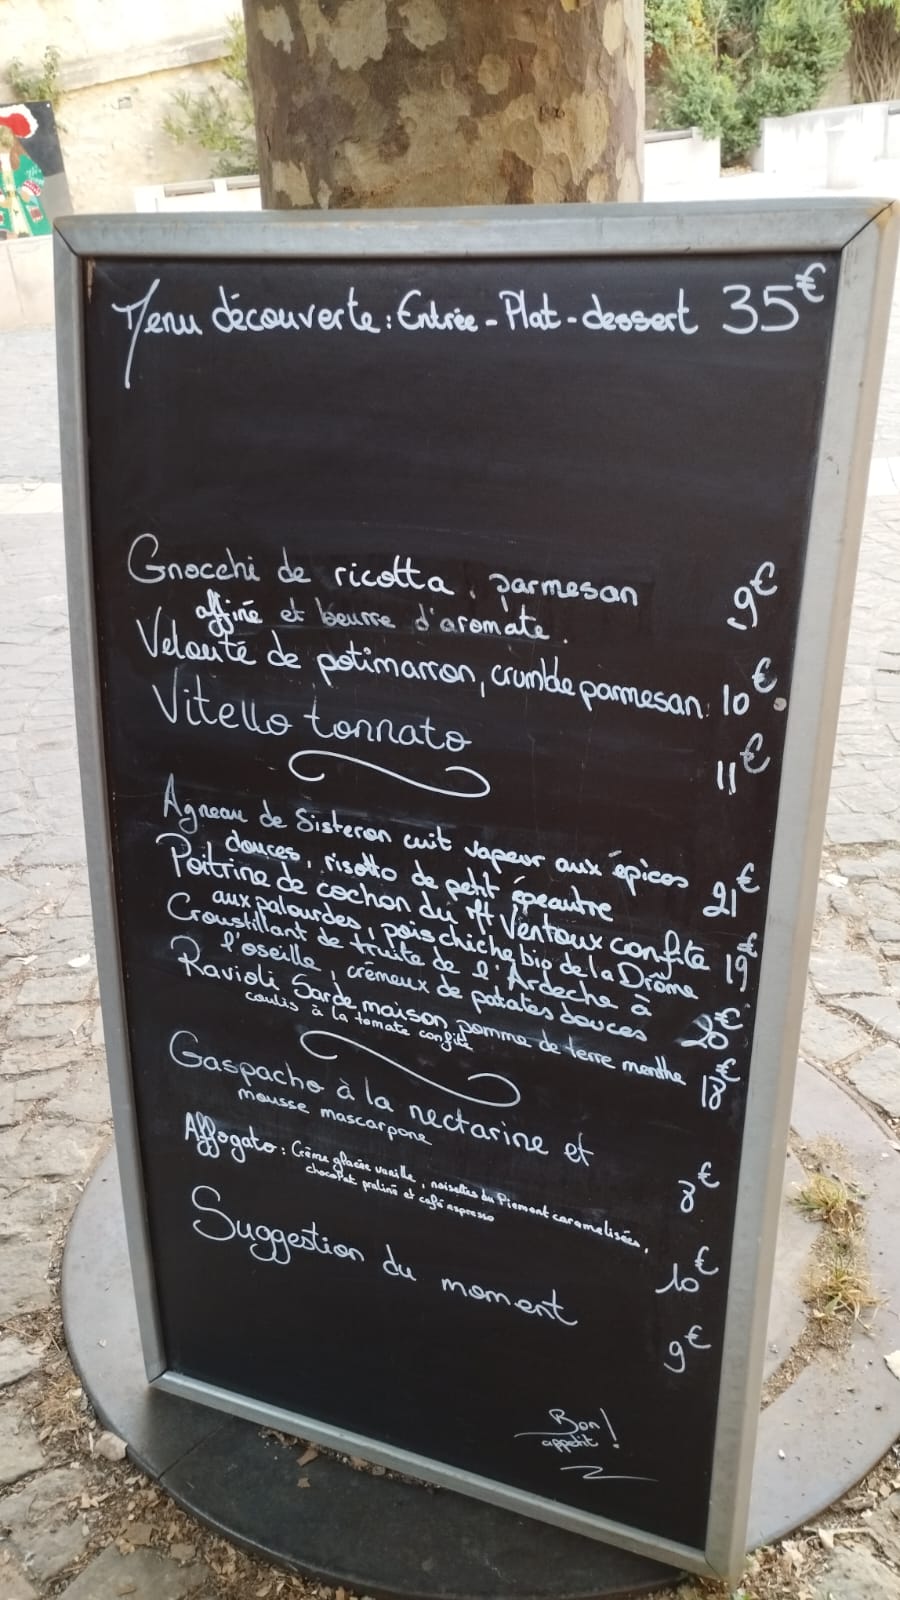 Menu découverte : Entrée - Plat - dessert 35€
Gnocchi de ricotta, parmesan 9€
affiné et beurre d'aromate.
Velouté de potimarron, crumble parmesan. 10€
Vitello tonnato 11€
Agneau de Sisteron cuit vapeur aux épices
douces, risotto de petit épeautre 21€
Poitrine de cochon du Mt Ventoux confite 19€
aux palourdes, pois chiche bio de la Drôme
Croustillant de truite de l'Ardeche à
l'oseille, crémeux de patates douces 20€
Ravioli Sarde maison pomme de terre menthe 18€
coulis à la tomate confite
Gaspacho à la nectarine et
mousse mascarpone 8€
Affogato : Crème glacée vanille, noisettes du Piemont caramelisées,
chocolat praliné et café espresso 10€
Suggestion du moment 9€
Bon
appetit !